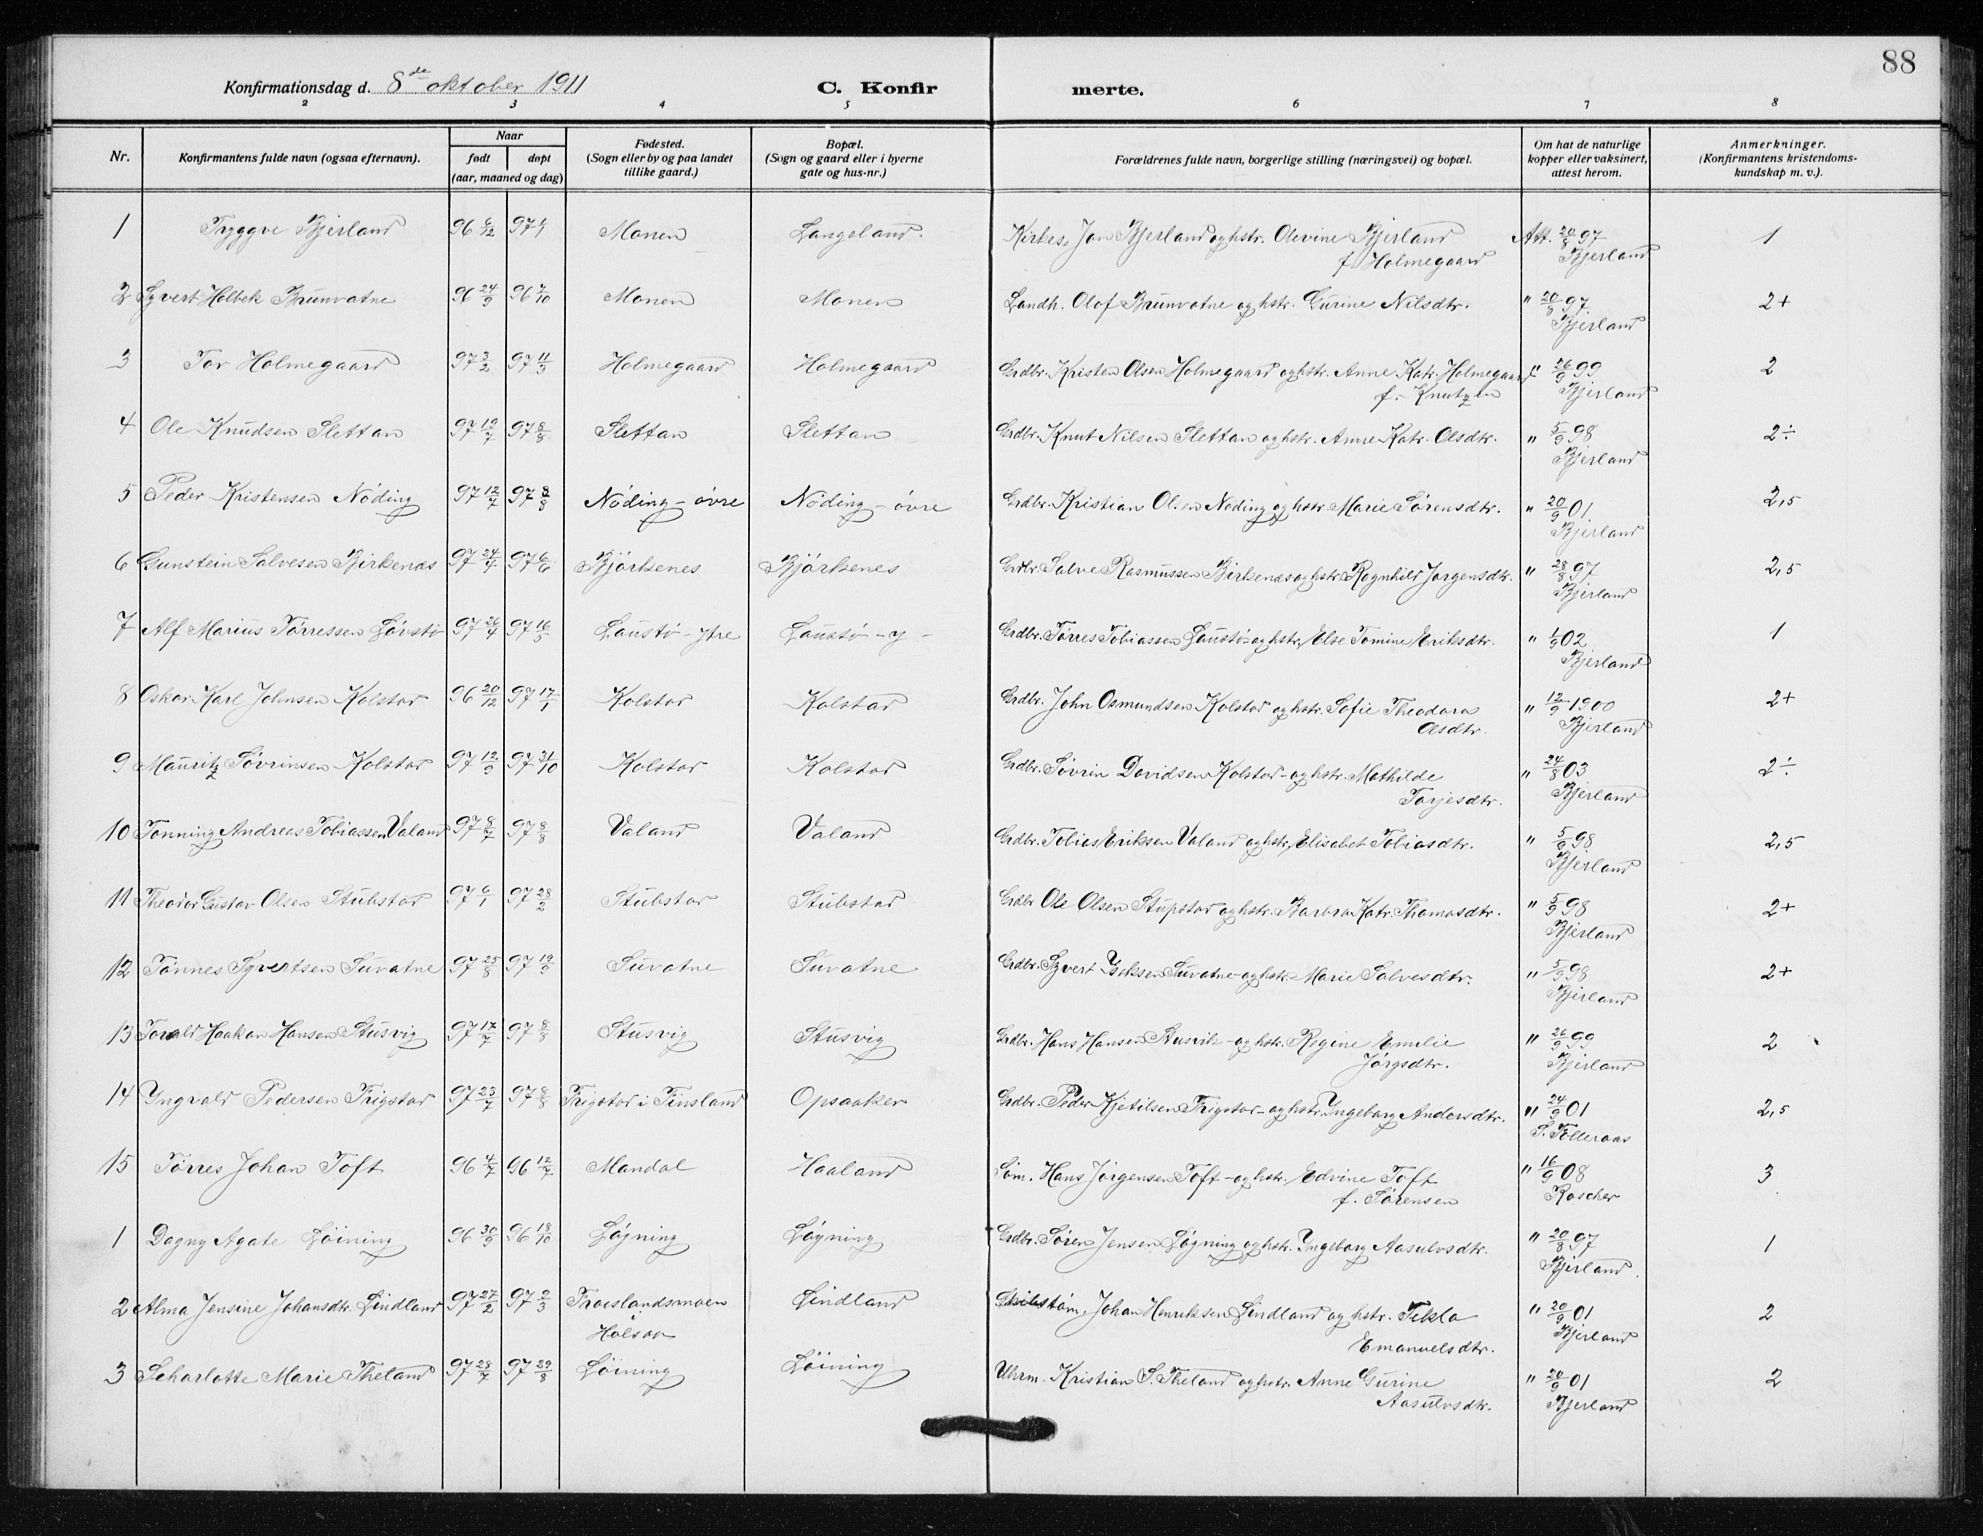 88
Konfirmationsdag d. 8de oktober 1911 C. Konfir merte.
2 3 4 5 6 7 8
Nr. Konfirmantens fulde navn (ogsaa efternavn). Naar født døpt (aar, maaned og dag) Fødested. (Sogn eller by og paa landet tillike gaard.) Bopæl. (Sogn og gaard eller i byerne gate og hus-nr.) Forældrenes fulde navn, borgerlige stilling (næringsvei) og bopæl. Om hat de naturlige kopper eller vaksinert, attest herom. Anmerkninger. (Konfirmantens kristendoms-kundskap m. v.).
1 Tryggve Bjerland 96 6/12 97 4/1 Monen Langeland. Kirkes. Jon Bjerland og hstr. Olevine Bjerland Att. 20/8 97 1
f. Holmegaard Bjerland
2 Syvert Holbek Brunvatne 96 24/9 96 7/10 Monen Monen Landh. Olof Brunvatne og hstr. Gurine Nilsdtr. " 20/8 97. 2+
Bjerland
3 Tor Holmegaard 97 3/2 97 11/3 Holmegaard Holmegaard Grdbr. Kristen Olsen Holmegaard og hstr. Anne Katr. Holmegaard " 26/9 99 2
f. Knutzen Bjerland
4 Ole Knudsen Slettan 97 19/7 97 8/8 Slettan Slettan Grdbr. Knut Nilsen Slettan og hstr. Anne Katr. Olsdtr. " 5/9 98 2÷
Bjerland
5 Peder Kristensen Nöding 97 12/7 97 8/8 Nöding - övre Nöding - övre Grdbr. Kristian Olsen Nöding og hstr. Marie Sørensdtr. " 20/9 01 2,5
Bjerland
6 Gunstein Salvesen Birkenæs 97 24/4 97 6/6 Bjørkenes Bjørkenes Grdbr. Salve Rasmussen Birkenæs og hstr. Ragnhild Jørgensdtr. " 28/8 97 2,5
Bjerland
7 Alf Marius Tørressen Løvstø 97 26/4 97 16/5 Laustø - ytre Laustø - y - Grdbr. Tørres Tobiassen Laustø - og hstr. Else Tomine Eriksdtr. " 1/9 02 1
Bjerland
8 Oskar Karl Johnsen Kolstor 96 20/12 97 17/1 Kolstor Kolstad Grdbr. John Osmundsen Kolstor og hstr. Sofie Theodora " 12/9 1900 2+
Olsdtr. Bjerland
9 Mauritz Søvrinsen Kolstor 97 12/9 97 31/10 Kolstor Kolstor Grdbr. Søvrin Davidsen Kolstor - og hstr. Mathilde " 24/8 03 2÷
Torjesdtr. Bjerland
10 Tønning Andreas Tobiassen Valand 97 8/7 97 8/8 Valand Valand Grdbr. Tobias Eriksen Valand og hstr. Elisabet Tobiasdtr. " 5/9 98 2,5
Bjerland
11 Theodor Gustav Olsen Stubstor 97 6/1 97 28/2 Stubstor Stubstad Grdbr. Ole Olsen Stupstor og hstr. Barbra Katr. Thomasdtr. " 5/9 98 2+
Bjerland
12 Tønnes Syvertsen Suvatne 97 25/8 97 19/9 Suvatne Suvatne Grdbr. Syvert Isaksen Suvatne - og hstr. Marie Salvesdtr. " 5/9 98 2+
Bjerland
13 Torvald Haakon Hansen Stusvig 97 17/7 97 8/8 Stusvig Stusvig Grdbr. Hans Hansen Stusvik - og hstr. Regine Emilie " 26/9 99 2
Jørgsdtr. Bjerland
14 Yngvald Pedersen Frigstad 97 23/7 97 8/8 Frigstad i Finsland Opsaaker Grdbr. Peder Kjetilsen Frigstad - og hstr. Yngeborg Andersdtr. " 24/9 01 2,5
S. Tolleraas
15 Tørres Johan Toft 96 4/7 96 12/7 Mandal Haaland Søm. Hans Jørgensen Toft - og hstr. Edvine Toft " 16/9 08 3
f. Sørensen Roscher
1 Dagny Agate Løining 96 30/9 96 18/10 Løgning Løgning Grdbr. Søren Jensen Løgning og hstr. Yngeborg Aasulvsdtr. " 20/8 97 1
Bjerland.
2 Alma Jensine Johansdtr. Lindland 97 27/2 97 2/3 Froislandsmoen Lindland tøm. Johan Henriksen Lindland og hstr. Tekla " 20/9 01 2
Holsaa Emanuelsdtr. Bjerland
3 Scharlotte Marie Theland 97 28/7 97 29/8 Løining Løining Uhrm. Kristian S. Theland og hstr. Anne Gurine " 20/9 01 2
Aasulvsdtr. Bjerland